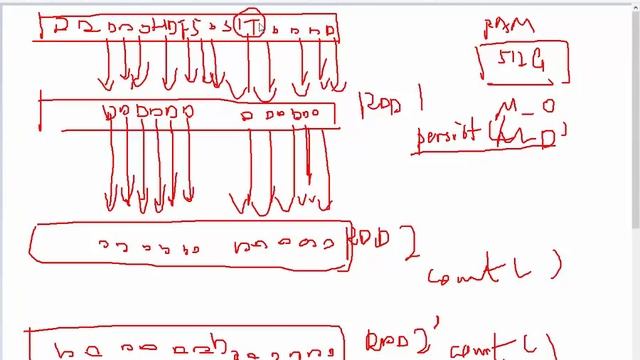 HDFS
1T
RAM
512G
RDD 1
M_O
persist(M_D)
RDD 2
count()
RDD2'
count()